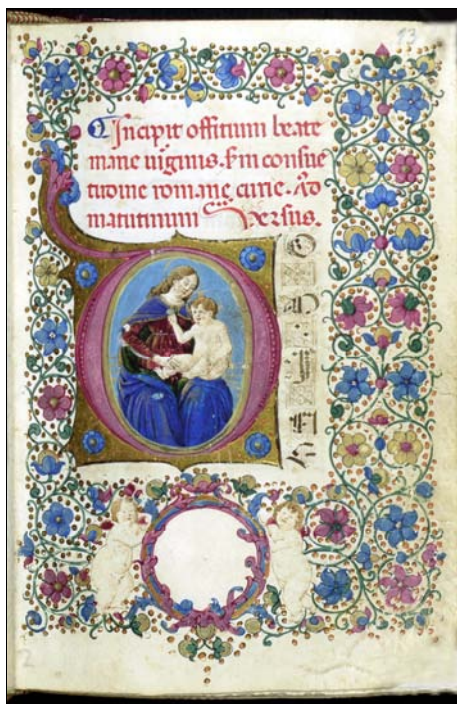 13
Incipit offitium beate
marie uirginis. Sm consue
tudine romane curie. Ad
matutinum Versus.
2